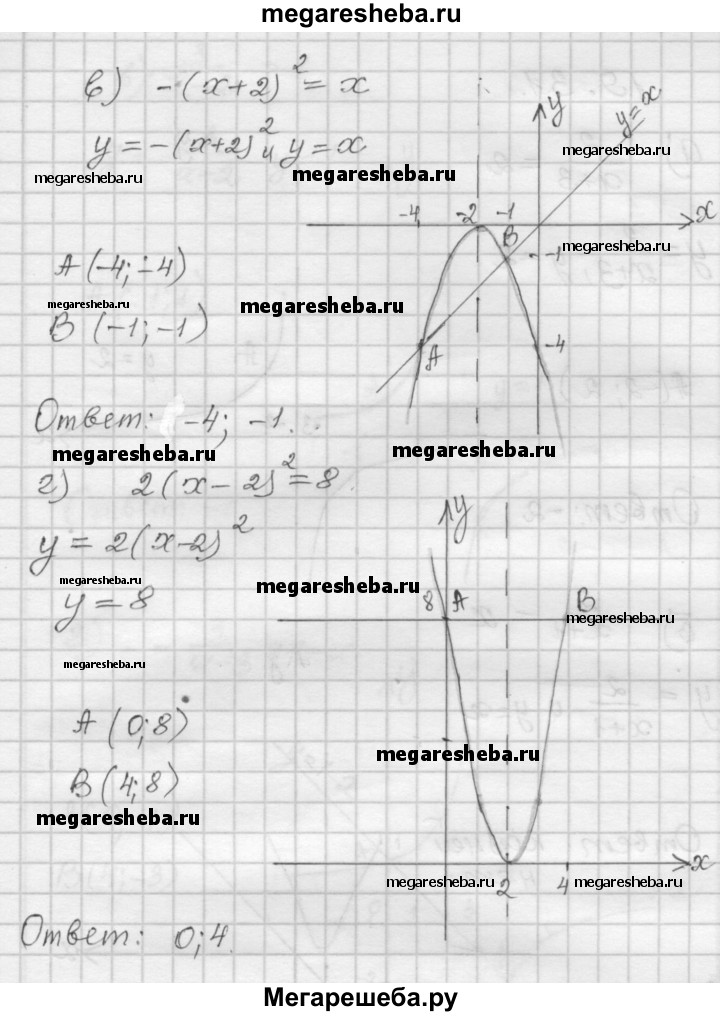 megaresheba.ru
в) -(x+2)² = x
y = -(x+2)² и y = x
megaresheba.ru
megaresheba.ru
megaresheba.ru
y
y=x
-4 -2 -1 x
megaresheba.ru
B
-1
A (-4; -4)
megaresheba.ru
megaresheba.ru
B (-1; -1)
A
-4
Ответ: -4; -1.
megaresheba.ru
megaresheba.ru
г) 2(x-2)² = 8.
y = 2(x-2)²
y
megaresheba.ru
megaresheba.ru
y = 8
8 A B
megaresheba.ru
megaresheba.ru
A (0; 8)
megaresheba.ru
B (4; 8)
megaresheba.ru
x
megaresheba.ru
2 4
megaresheba.ru
Ответ: 0; 4.
Мегарешеба.ру